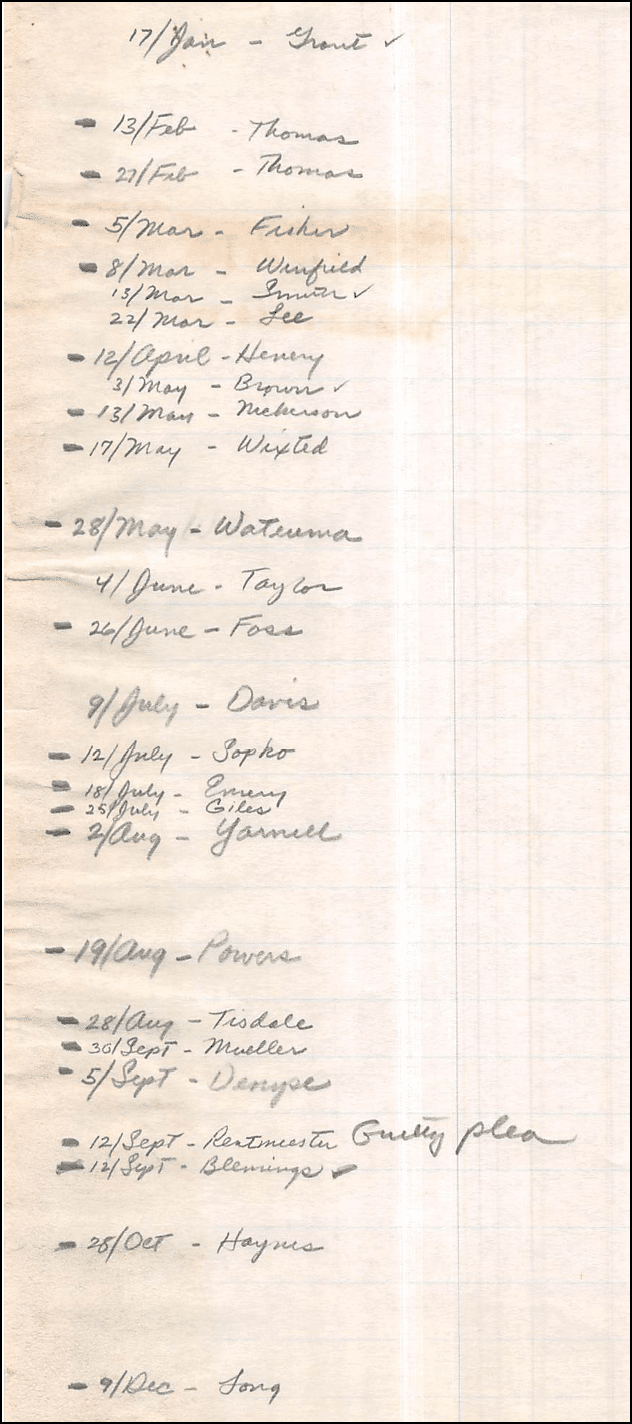 17/Jan - Grout ✓
- 13/Feb - Thomas
- 27/Feb - Thomas
- 5/Mar - Fisher
- 8/Mar - Winfield
13/Mar - Smith ✓
22/Mar - Lee
- 12/April - Henery
3/May - Brown ✓
- 13/May - Nickerson
- 17/May - Wixted
- 28/May - Wateuma
4/June - Taylor
- 26/June - Foss
9/July - Davis
- 12/July - Sopko
- 18/July - Emery
- 25/July - Giles
- 2/Aug - Yarnell
- 19/Aug - Powers
- 28/Aug - Tisdale
- 30/Sept - Mueller
- 5/Sept - Denyse
- 12/Sept - Rentmeester Guilty plea
- 12/Sept - Blemings ✓
- 28/Oct - Haynes
- 9/Dec - Long